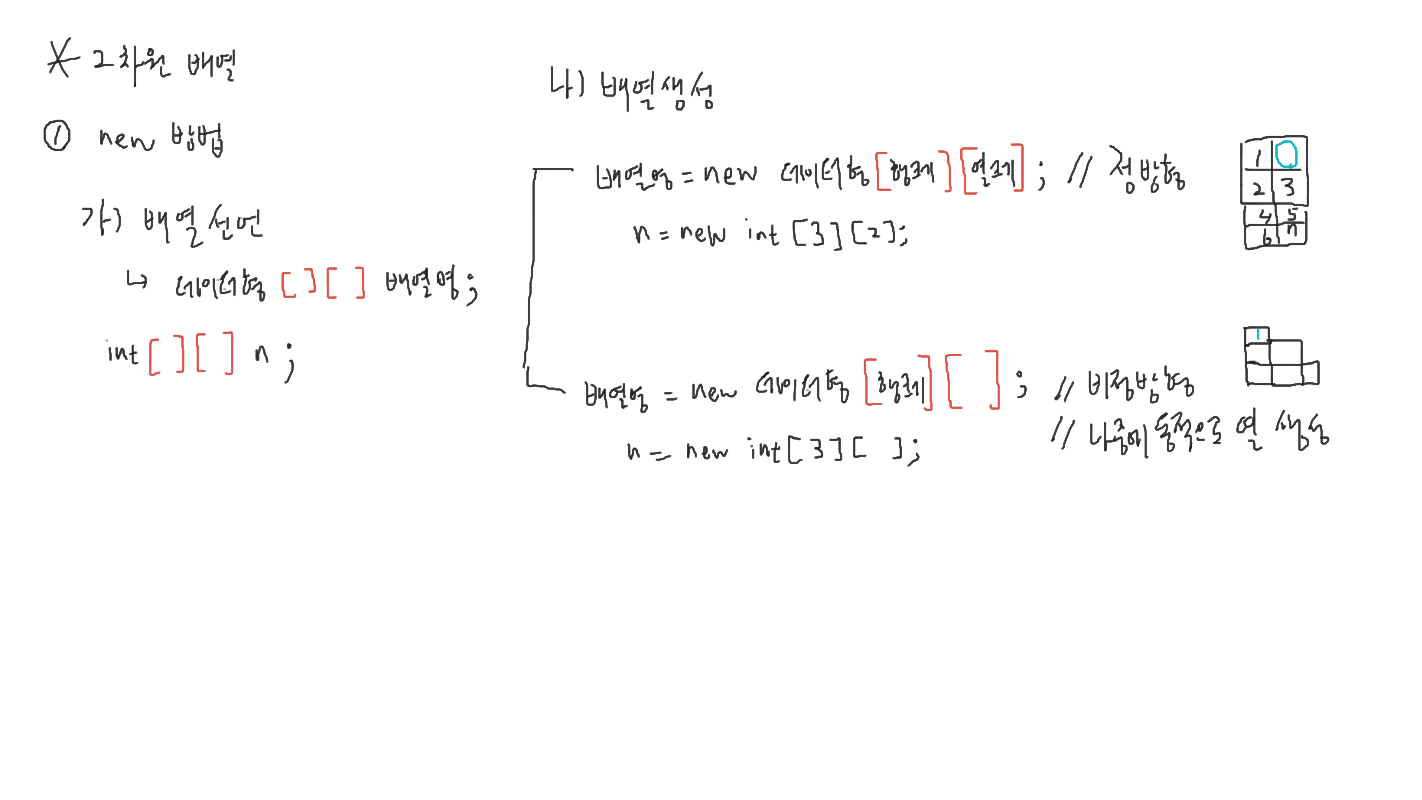 * 2차원 배열
① new 방법
가) 배열선언
↳ 데이터형 [ ][ ] 배열명;
int[ ][ ] n;
나) 배열생성
배열명 = new 데이터형[행크기][열크기]; // 정방형
n = new int [3][2];
1
2 3
4 5
6 n
배열명 = new 데이터형[행크기][ ]; // 비정방형
// 나중에 동적으로 열 생성
n = new int[3][ ];
1